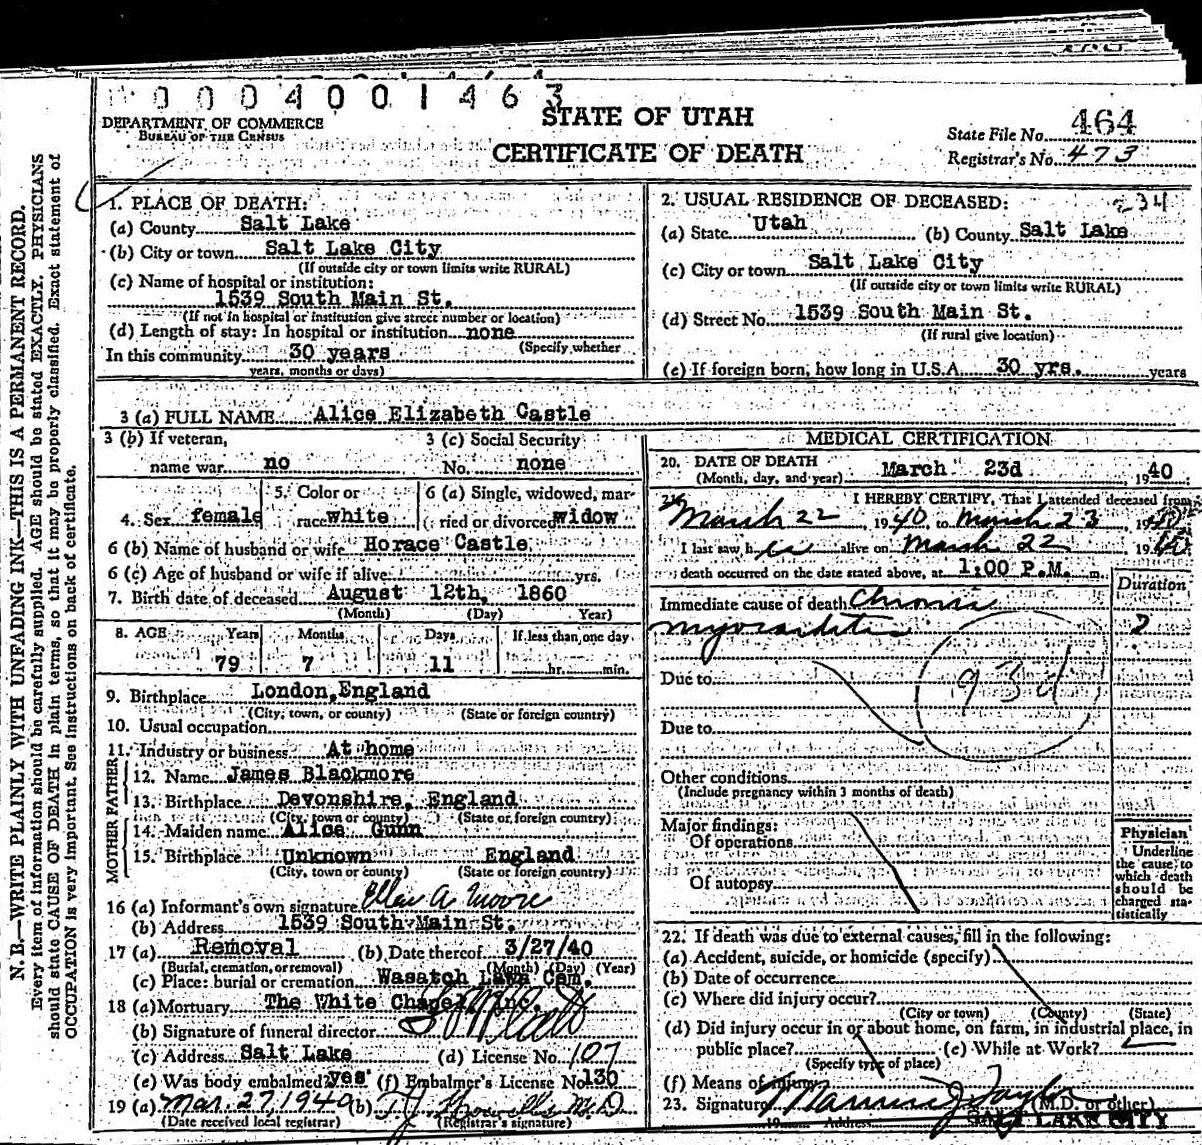 0 0 0 4 0 0 1 4 6 3
DEPARTMENT OF COMMERCE
BUREAU OF THE CENSUS
STATE OF UTAH
CERTIFICATE OF DEATH
State File No. 464
Registrar's No. 473
N. B.—WRITE PLAINLY WITH UNFADING INK—THIS IS A PERMANENT RECORD.
Every item of information should be carefully supplied. AGE should be stated EXACTLY. PHYSICIANS
should state CAUSE OF DEATH in plain terms, so that it may be properly classified. Exact statement of
OCCUPATION is very important. See instructions on back of certificate.
1. PLACE OF DEATH:
(a) County Salt Lake
(b) City or town Salt Lake City
(If outside city or town limits write RURAL)
(c) Name of hospital or institution:
1539 South Main St.
(If not in hospital or institution give street number or location)
(d) Length of stay: In hospital or institution none
(Specify whether
In this community 30 years
years, months or days)
2. USUAL RESIDENCE OF DECEASED: 234
(a) State Utah (b) County Salt Lake
(c) City or town Salt Lake City
(If outside city or town limits write RURAL)
(d) Street No. 1539 South Main St.
(If rural give location)
(e) If foreign born, how long in U.S.A. 30 yrs. years
3 (a) FULL NAME Alice Elizabeth Castle
3 (b) If veteran, 3 (c) Social Security
name war no No. none
4. Sex female 5. Color or race white 6 (a) Single, widowed, married or divorced widow
6 (b) Name of husband or wife Horace Castle
6 (c) Age of husband or wife if alive yrs.
7. Birth date of deceased August 12th, 1860
(Month) (Day) Year)
8. AGE Years Months Days If less than one day
79 7 11 hr. min.
9. Birthplace London, England
(City, town, or county) (State or foreign country)
10. Usual occupation
11. Industry or business At home
FATHER
12. Name James Blackmore
13. Birthplace Devonshire, England
(City, town or county) (State or foreign country)
MOTHER
14. Maiden name Alice Gunn
15. Birthplace Unknown England
(City, town or county) (State or foreign country)
16 (a) Informant's own signature Ellen A Moore
(b) Address 1539 South Main St.
17 (a) Removal (b) Date thereof 3/27/40
(Burial, cremation, or removal) (Month) (Day) (Year)
(c) Place: burial or cremation Wasatch Lawn Cem.
18 (a) Mortuary The White Chapel Inc
(b) Signature of funeral director
(c) Address Salt Lake (d) License No. 107
(e) Was body embalmed? yes (f) Embalmer's License No. 130
19 (a) Mar. 27, 1940 (b) T. J. Howells M.D.
(Date received local registrar) (Registrar's signature)
MEDICAL CERTIFICATION
20. DATE OF DEATH March 23d 1940
(Month, day, and year)
21. I HEREBY CERTIFY, That I attended deceased from
March 22, 1940, to March 23 1940
I last saw her alive on March 22 1940
death occurred on the date stated above, at 1:00 P.M. m.
Duration
Immediate cause of death Chronic
myocarditis ?
Due to 93d
Due to
Other conditions
(Include pregnancy within 3 months of death)
Major findings:
Of operations
Of autopsy
Physician
Underline
the cause to
which death
should be
charged sta-
tistically
22. If death was due to external causes, fill in the following:
(a) Accident, suicide, or homicide (specify)
(b) Date of occurrence
(c) Where did injury occur?
(City or town) (County) (State)
(d) Did injury occur in or about home, on farm, in industrial place, in
public place? (e) While at Work?
(Specify type of place)
(f) Means of injury
23. Signature (M.D. or other)
19 Address SALT LAKE CITY